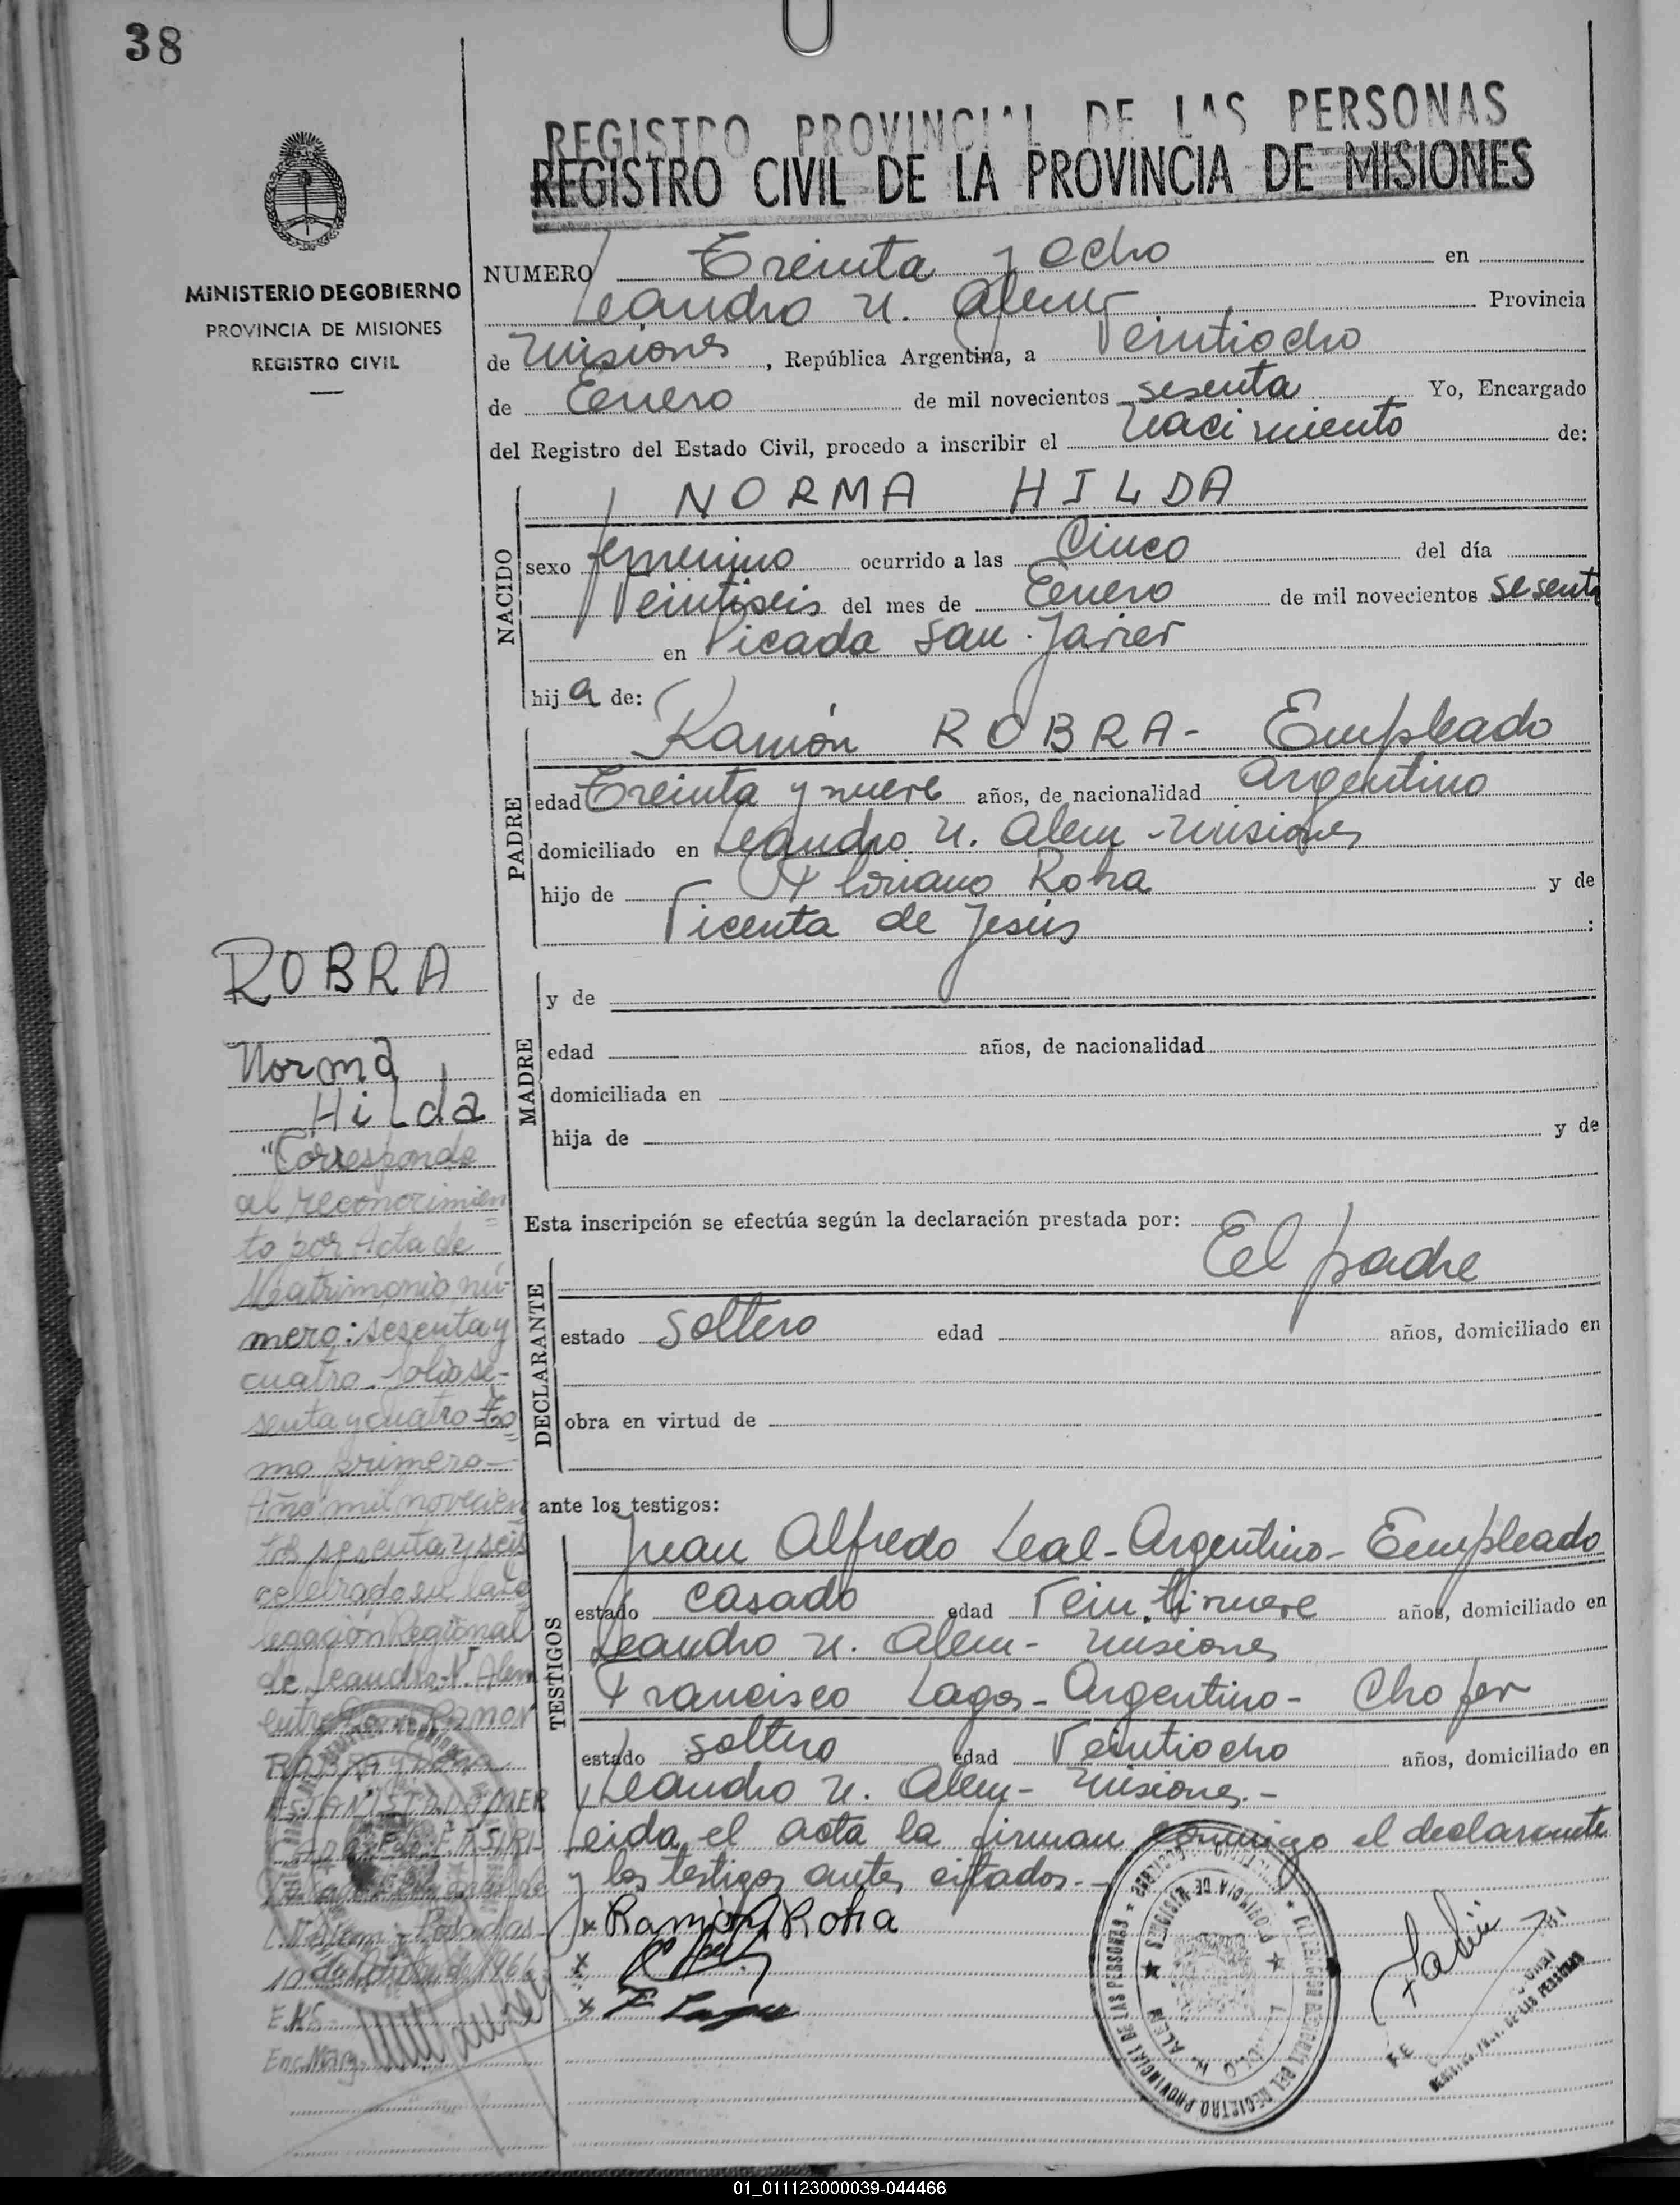 38
REGISTRO PROVINCIAL DE LAS PERSONAS
REGISTRO CIVIL DE LA PROVINCIA DE MISIONES
MINISTERIO DE GOBIERNO
PROVINCIA DE MISIONES
REGISTRO CIVIL
NUMERO Treinta y ocho en
Leandro N. Alem Provincia
de Misiones, República Argentina, a Veintiocho
de Enero de mil novecientos sesenta Yo, Encargado
del Registro del Estado Civil, procedo a inscribir el Nacimiento de:
NACIDO
NORMA HILDA
sexo femenino ocurrido a las Cinco del día
Veintiseis del mes de Enero de mil novecientos sesenta
en Picada San Javier
hija de:
PADRE
Ramón ROBRA - Empleado
edad Treinta y nueve años, de nacionalidad Argentino
domiciliado en Leandro N. Alem - Misiones
hijo de Floriano Robra y de
Vicenta de Jesús :
MADRE
y de
edad años, de nacionalidad
domiciliada en
hija de y de
Esta inscripción se efectúa según la declaración prestada por:
DECLARANTE
El padre
estado soltero edad años, domiciliado en
obra en virtud de
ante los testigos:
TESTIGOS
Juan Alfredo Leal - Argentino - Empleado
estado casado edad Veintinueve años, domiciliado en
Leandro N. Alem - Misiones
Francisco Lagos - Argentino - Chofer
estado soltero edad Veintiocho años, domiciliado en
Leandro N. Alem - Misiones.-
Leida el acta la firman conmigo el declarante
y los testigos antes citados.-
x Ramón Robra
x
x F. Lagos
ROBRA
Norma
Hilda
"Corresponde
al reconocimien
to por Acta de
Matrimonio nú-
mero: sesenta y
cuatro - folio se-
senta y cuatro - To
mo primero -
Año mil novecien
tos sesenta y seis
celebrado en la De
legación Regional
de Leandro N. Alem
entre Don Ramon
ROBRA y Doña
L. N. Alem - Posadas
10 de 1966
01_011123000039-044466